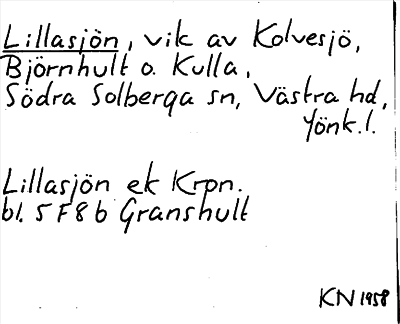 Lillasjön, vik av Kolvesjö,
Björnhult o. Kulla,
Södra Solberga sn, Västra hd,
Jönk.l.
Lillasjön ek Krpn.
bl. 5 F 8 b Granshult
KN 1958